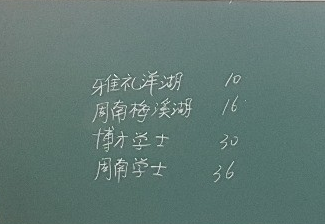 雅礼洋湖 10
周南梅溪湖 16
博才学士 30
周南学士 36